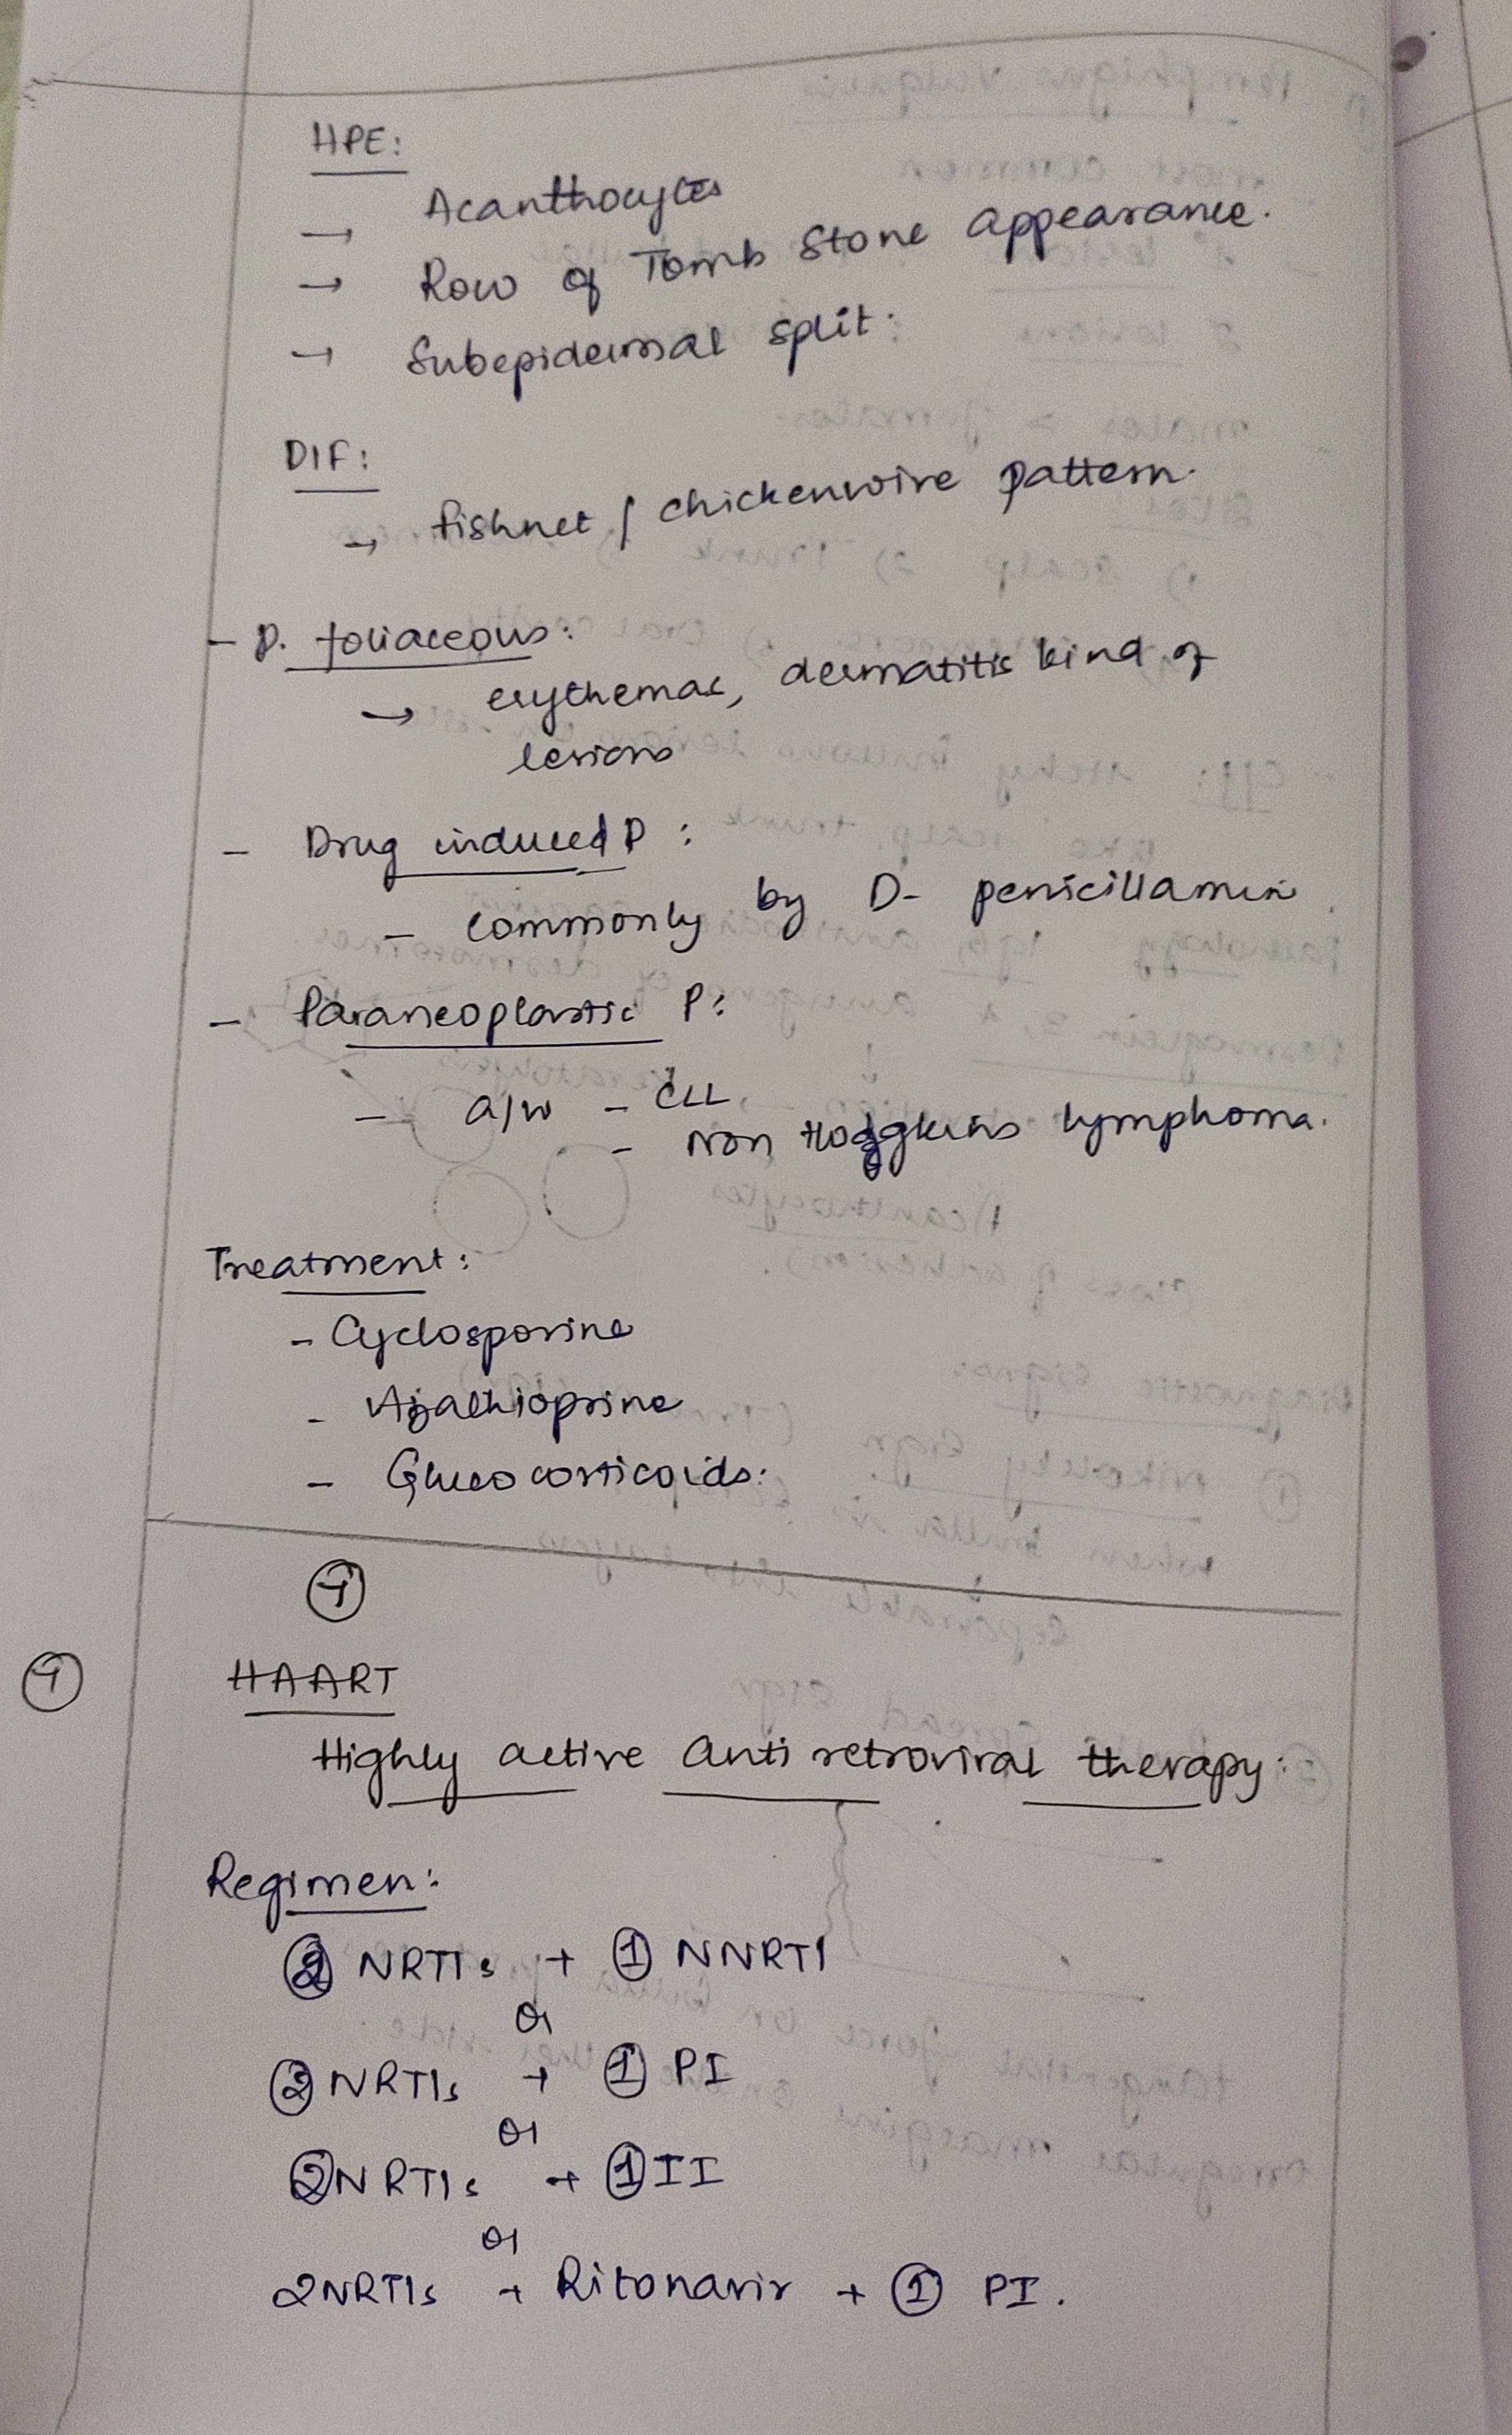 HPE:
→ Acanthocytes
→ Row of Tomb Stone appearance.
→ Subepidermal split.
DIF:
→ fishnet / chickenwire pattern.
- P. foliaceous:
→ erythemas, dermatitis kind of
lesions
- Drug induced P :
- commonly by D- penicillamin
- Paraneoplastic P:
- a/w - CLL,
- Non Hodgkins lymphoma.
Treatment:
- Cyclosporine
- Azathioprine
- Glucocorticoids.
④
④ HAART
Highly active anti retroviral therapy:
Regimen:
② NRTIs + ① NNRTI
or
② NRTIs + ① PI
or
② NRTIs + ① II
or
2NRTIs + Ritonavir + ① PI.